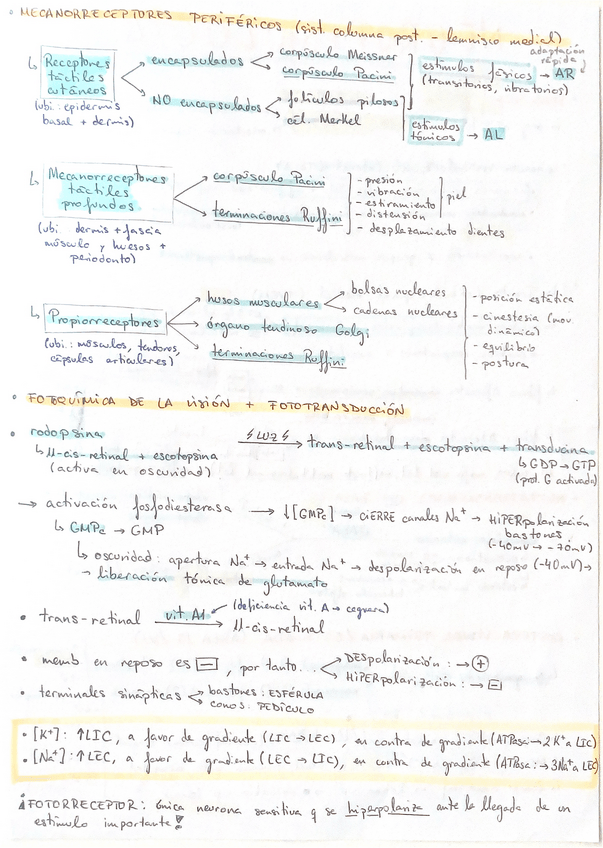 • MECANORRECEPTORES PERIFÉRICOS (sist. columna post. - lemnisco medial)
↳ Receptores táctiles cutáneos
(ubi: epidermis basal + dermis)
encapsulados
corpúsculo Meissner
corpúsculo Pacini
NO encapsulados
folículos pilosos
cél. Merkel
estímulos fásicos → AR
adaptación rápida
(transitorios, vibratorios)
estímulos tónicos → AL
↳ Mecanorreceptores táctiles profundos
(ubi: dermis + fascia
músculo y huesos +
periodonto)
corpúsculo Pacini
terminaciones Ruffini
- presión
- vibración
- estiramiento
- distensión
- desplazamiento dientes
piel
↳ Propiorreceptores
(ubi: músculos, tendones,
cápsulas articulares)
husos musculares
bolsas nucleares
cadenas nucleares
órgano tendinoso Golgi
terminaciones Ruffini
- posición estática
- cinestesia (mov. dinámica)
- equilibrio
- postura
• FOTOQUÍMICA DE LA VISIÓN + FOTOTRANSDUCCIÓN
• rodopsina
↳ 11-cis-retinal + escotopsina
(activa en oscuridad)
LUZ → trans-retinal + escotopsina + transducina
↳ GDP → GTP
(prot. G activada)
→ activación fosfodiesterasa → ↓[GMPc] → CIERRE canales Na⁺ → HIPERpolarización
bastones
(-40mV → -70mV)
↳ GMPc → GMP
↳ oscuridad: apertura Na⁺ → entrada Na⁺ → despolarización en reposo (-40mV) →
→ liberación tónica de glutamato
• trans-retinal vit. A1 → 11-cis-retinal
(deficiencia vit. A → ceguera)
• memb en reposo es ⊟, por tanto...
DESpolarización: → ⊕
HIPERpolarización: → ⊟
• terminales sinápticas
bastones: ESFÉRULA
conos: PEDÍCULO
• [K⁺]: ↑LIC, a favor de gradiente (LIC → LEC), en contra de gradiente (ATPasa: → 2K⁺ a LIC)
• [Na⁺]: ↑LEC, a favor de gradiente (LEC → LIC), en contra de gradiente (ATPasa: → 3Na⁺ a LEC)
¡FOTORRECEPTOR: única neurona sensitiva q se hiperpolariza ante la llegada de un
estímulo importante!